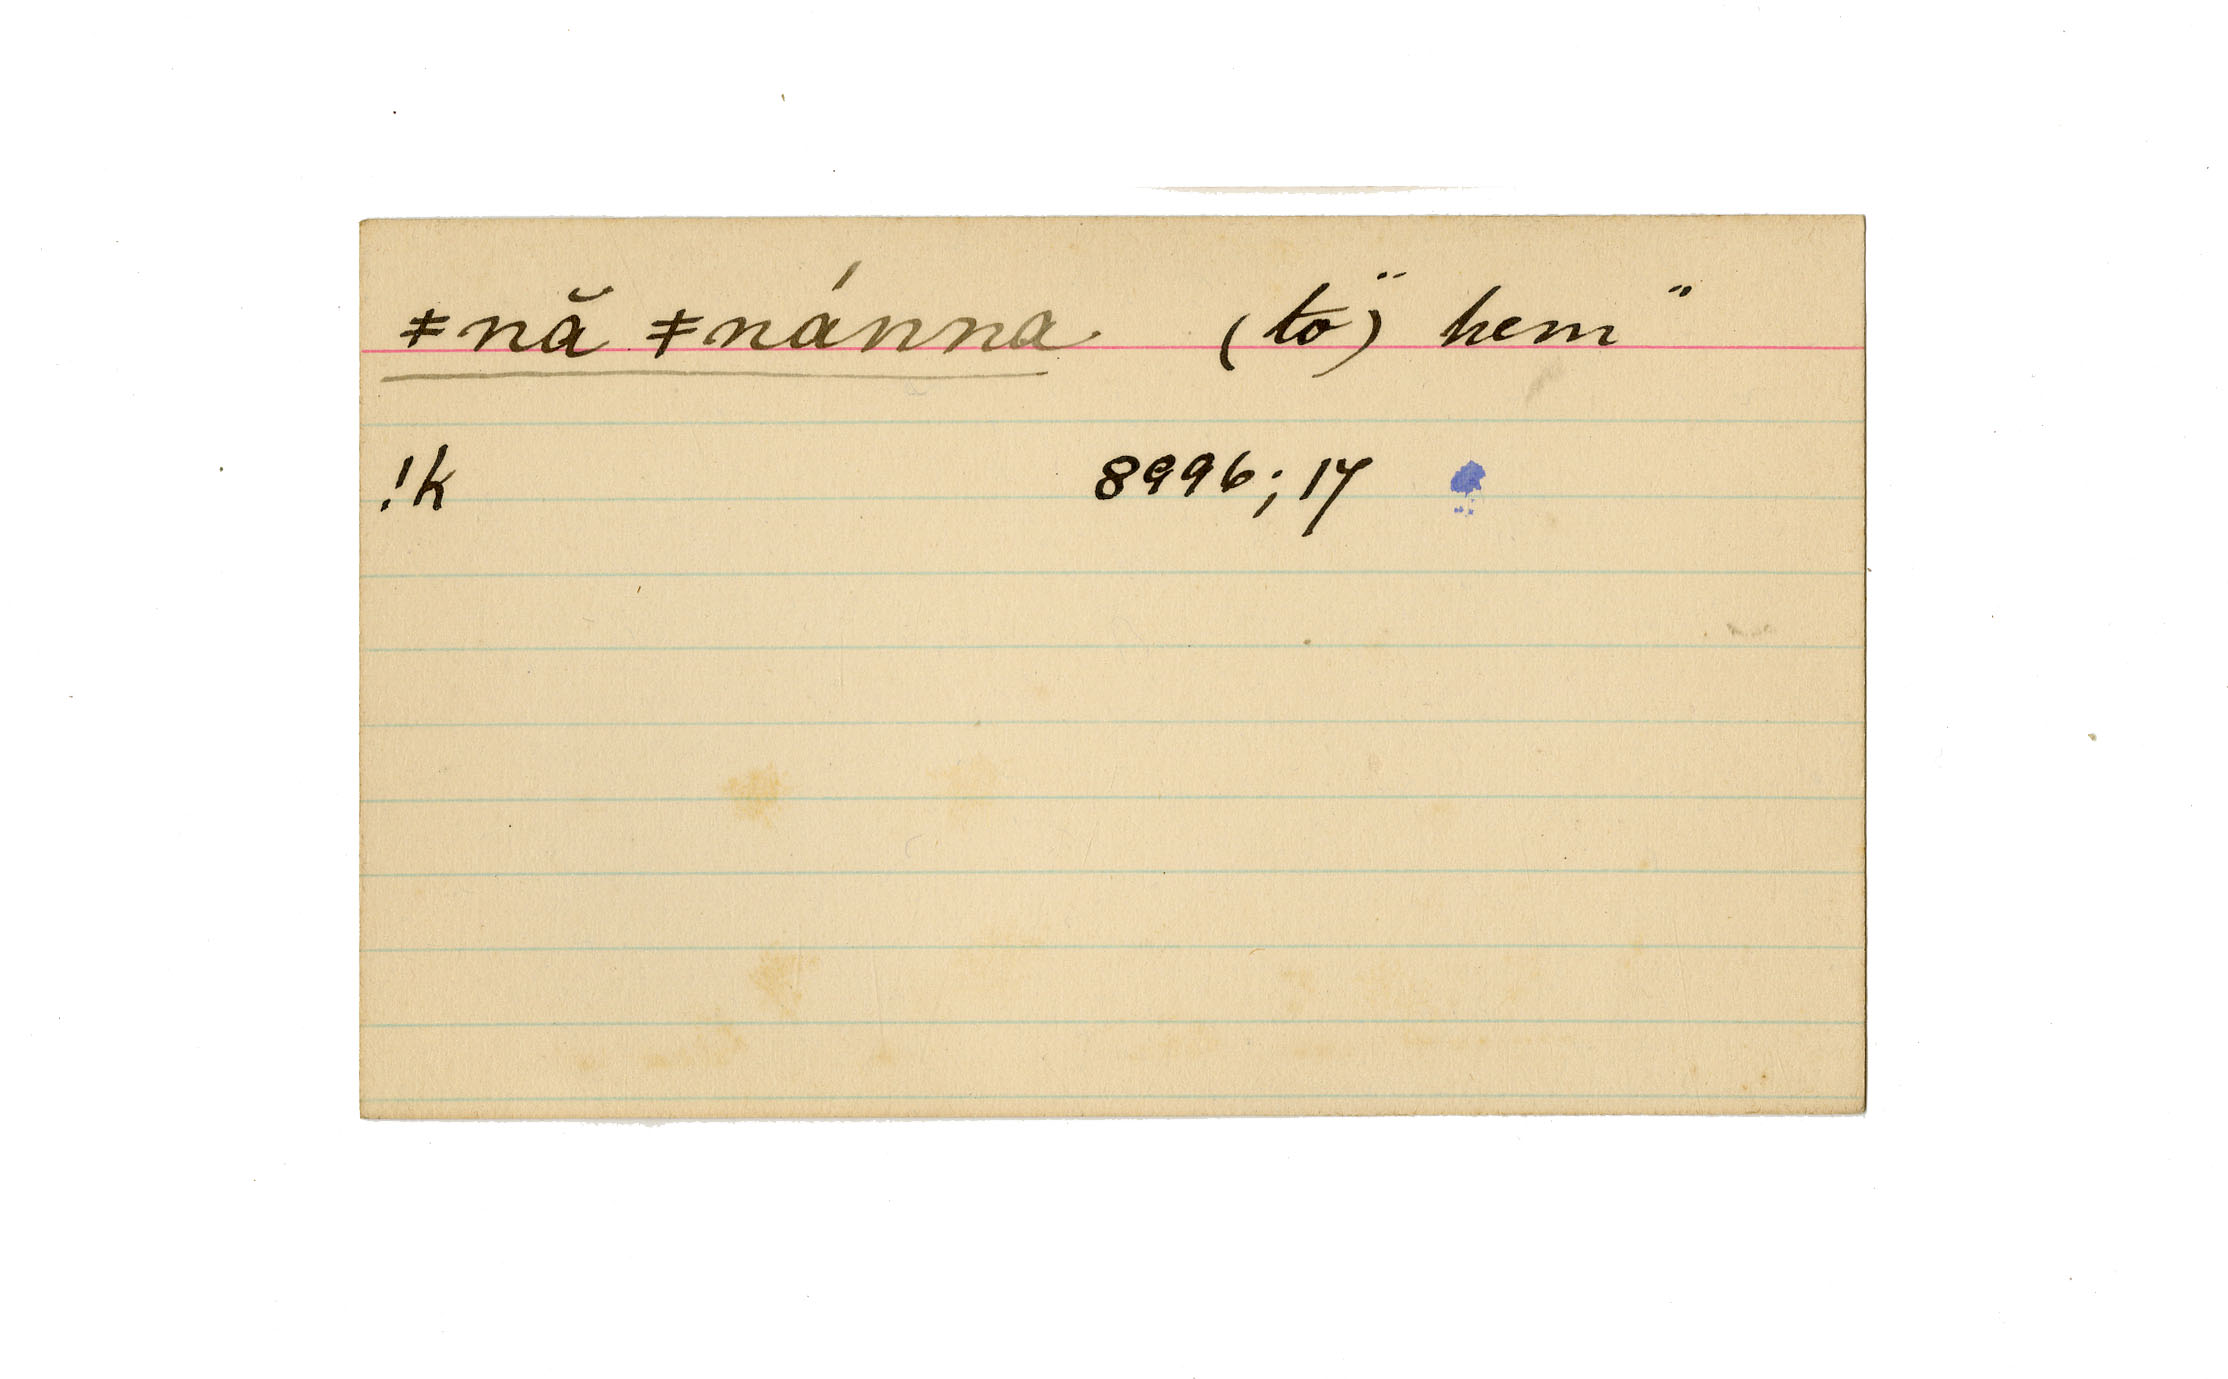 ǂnă ǂnánna (to) "hem"
!k 8996; 17